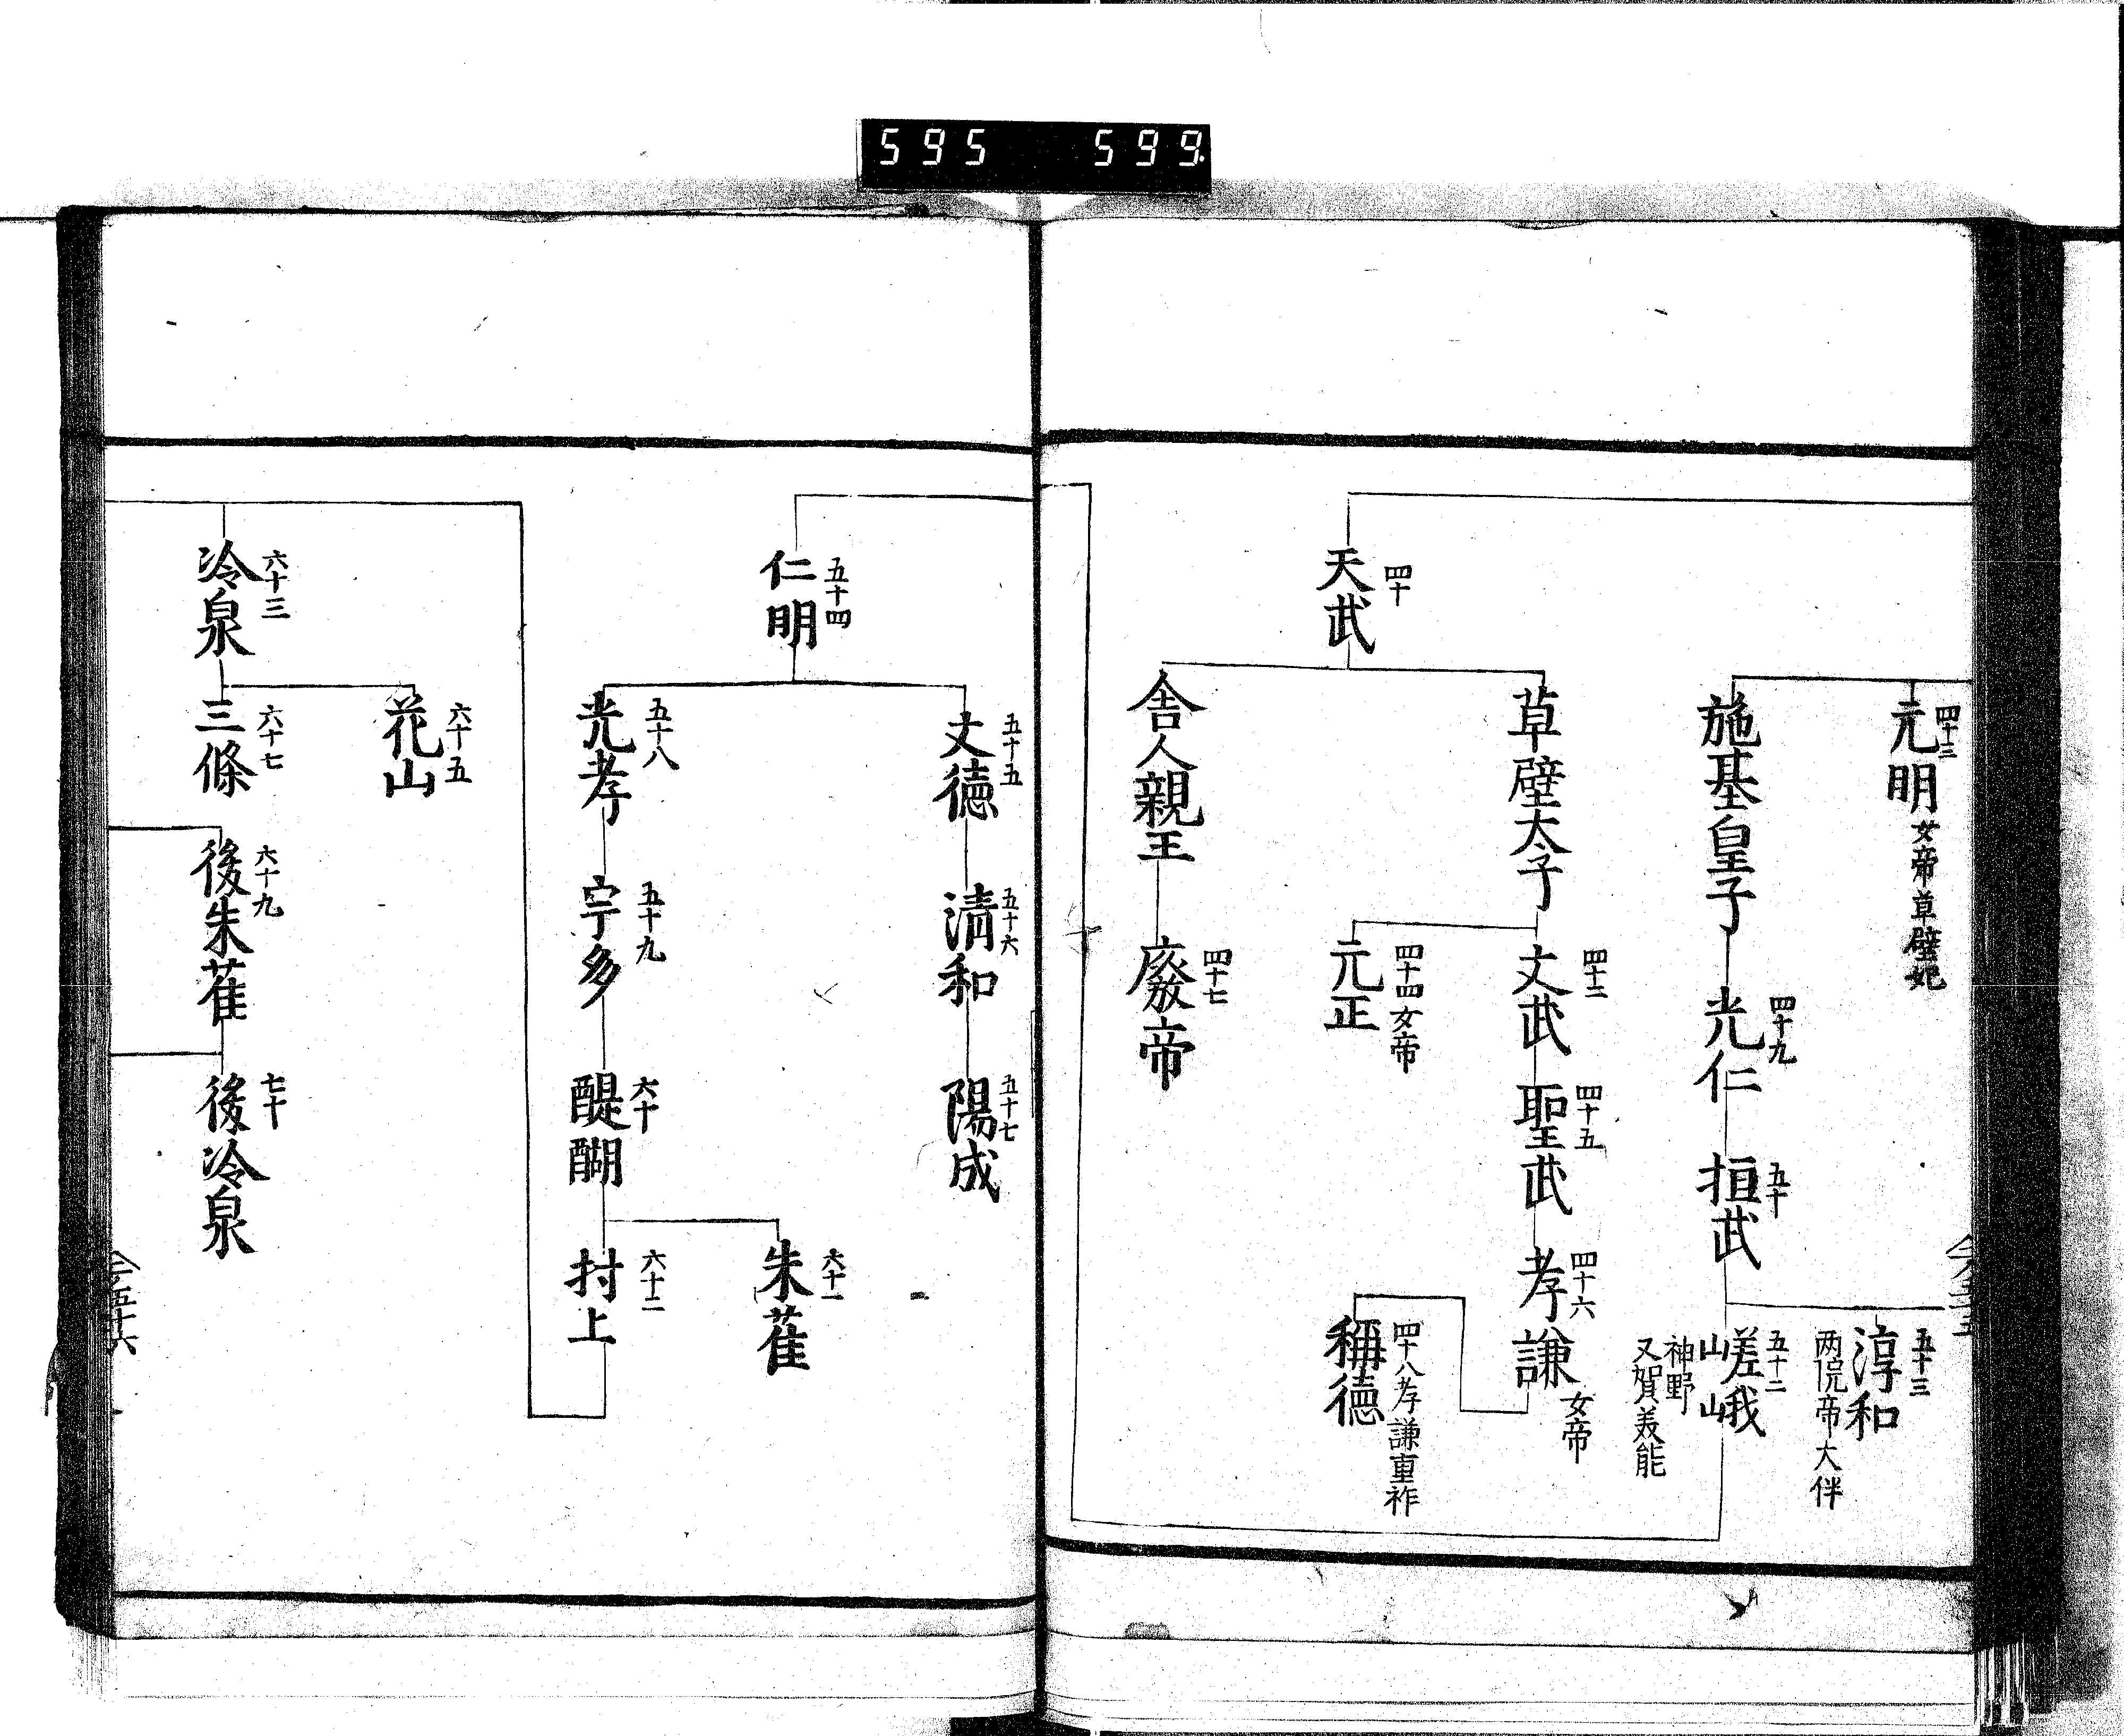 595 599
四十三
元明 女帝草壁妃
施基皇子
四十九
光仁
五十
桓武
五十三
淳和
两院帝大伴
五十二
嵯峨
神野
又賀美能
四十
天武
草壁太子
四十二
文武
四十五
聖武
四十六
孝謙 女帝
四十四女帝
元正
四十八孝謙重祚
稱德
舎人親王
四十七
廢帝
五十四
仁明
五十五
文德
五十六
淸和
五十七
陽成
五十八
光孝
五十九
宇多
六十
醍醐
六十一
朱雀
六十二
村上
六十三
冷泉
六十五
花山
六十七
三條
六十九
後朱雀
七十
後冷泉